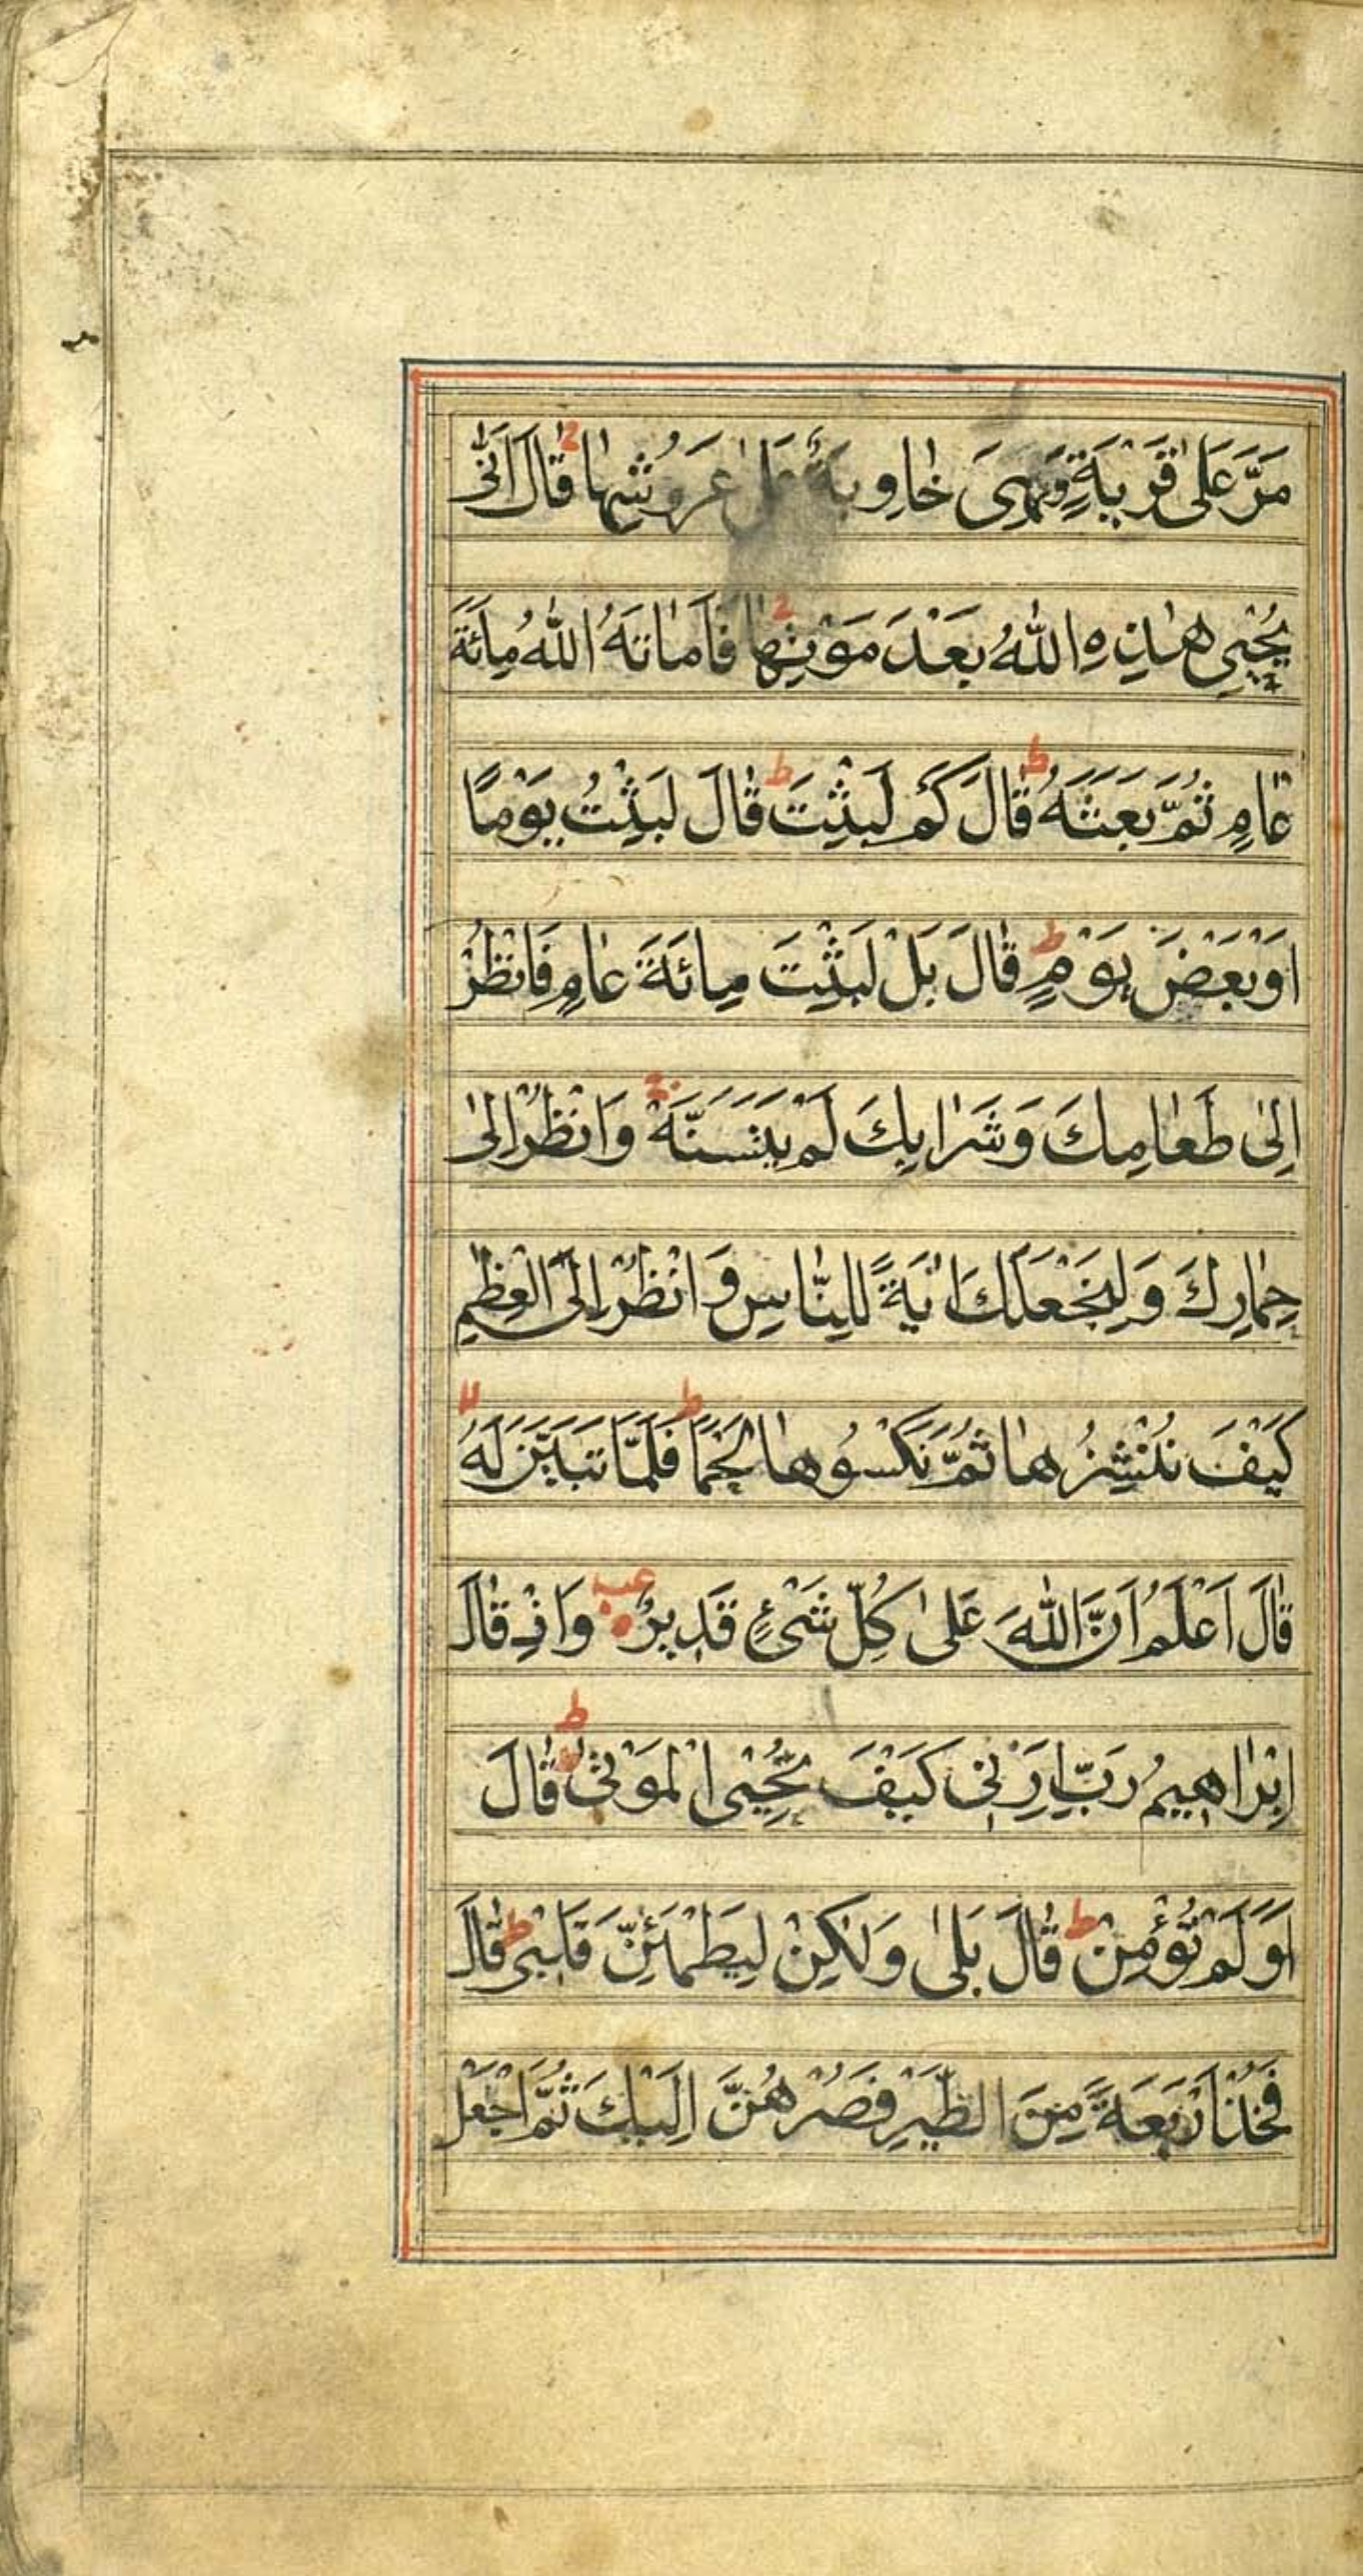 مَرَّ عَلىٰ قَرْيَةٍ وَهِىَ خٰاوِيَةٌ عَلىٰ عُرُوشِهٰا ج قٰالَ اَنّٰى
يُحْيٖى هٰذِهِ اللّٰهُ بَعْدَ مَوْتِهٰا ج فَاَمٰاتَهُ اللّٰهُ مِائَةَ
عٰامٍ ثُمَّ بَعَثَهُ ط قٰالَ كَمْ لَبِثْتَ ط قٰالَ لَبِثْتُ يَوْمًا
اَوْ بَعْضَ يَوْمٍ ط قٰالَ بَلْ لَبِثْتَ مِائَةَ عٰامٍ فَانْظُرْ
اِلىٰ طَعٰامِكَ وَشَرٰابِكَ لَمْ يَتَسَنَّهْ ج وَانْظُرْ اِلىٰ
حِمٰارِكَ وَلِنَجْعَلَكَ اٰيَةً لِلنّٰاسِ وَانْظُرْ اِلَى الْعِظٰمِ
كَيْفَ نُنْشِزُهٰا ثُمَّ نَكْسُوهٰا لَحْمًا ط فَلَمّٰا تَبَيَّنَ لَهُ لا
قٰالَ اَعْلَمُ اَنَّ اللّٰهَ عَلىٰ كُلِّ شَىْءٍ قَدٖيرٌ عب وَاِذْ قٰالَ
اِبْرٰاهٖيمُ رَبِّ اَرِنٖى كَيْفَ تُحْيِى الْمَوْتٰى ط قٰالَ
اَوَلَمْ تُؤْمِنْ ط قٰالَ بَلىٰ وَلٰكِنْ لِيَطْمَئِنَّ قَلْبٖى ط قٰالَ
فَخُذْ اَرْبَعَةً مِنَ الطَّيْرِ فَصُرْهُنَّ اِلَيْكَ ثُمَّ اجْعَلْ